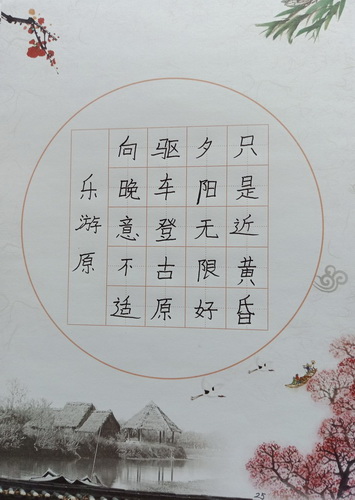 乐游原
向晚意不适
驱车登古原
夕阳无限好
只是近黄昏
25